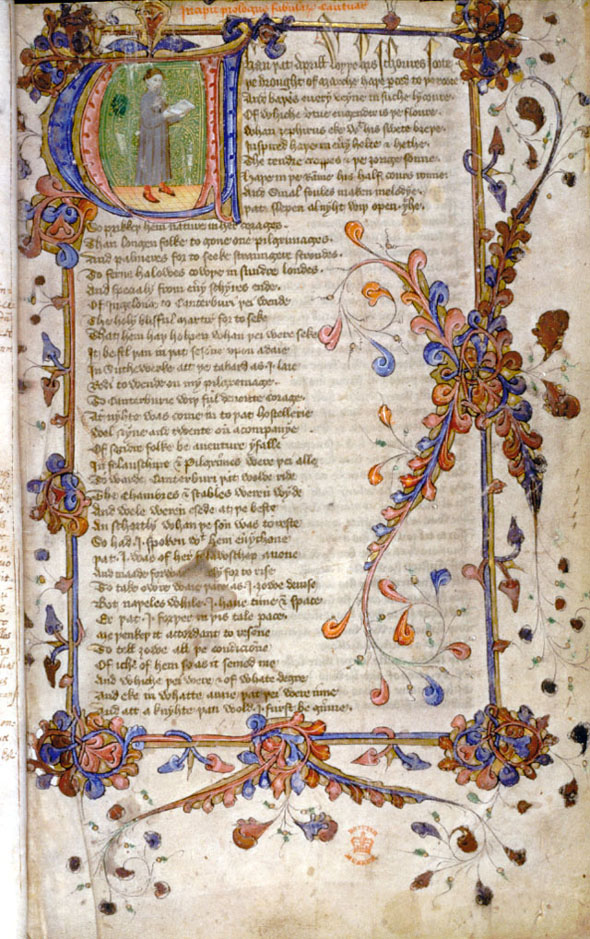 Incipit prologus fabularum Cantuar
Whan þat Aprill wyþe his schoures soote
þe drought of marche haþe perced to þe roote
And baþed euery veyne in suche lycoure
Of whiche vertue engendred is þe floure
Whan zephirus eke wt his swete breþe
Inspired haþe in euery holte & hethe
The tendre croppes & þe ȝonge sonne
Haþe in þe Rame his half cours ronne
And smal foules maken melodye
þat slepen al nyht wiþ open yhe
So prikkeþ hem nature in her corages
Than longen folke to gone one pilgrimages
And palmeres for to seeke straungere strondes
To ferne halowes couþe in sundre londes
And specialy from euery schyres ende
Of Ingelond to Canterburi þei wende
The holy blisful martir for to seke
That hem haþ holpen whan þei were seke
It befel þan in þat sesone upon a daie
In Suthwerke att þe tabard as I laie
Redi to wende on my pilgremage
To Canterburie wiþ ful deuoute corage
At nyhte was come in to þat hostellerie
Wel nyne and twente on a companye
Of sondre folke be auenture yfalle
In felauschipe & Pilgrimes were þei alle
To warde Canterburi þat wolde ride
The Chambres & stables weren wyde
And wele weren esede att þe beste
An schortly whan þe son was to reste
So had I spoken wt hem euerychone
þat I was of her felawschep anone
And maade forwarde erly for to rise
To take owre waie þere as I ȝowe deuise
Bot naþeles while I haue time & space
Er þat I forþer in þis tale pace
Me þenkeþ it accordant to resone
To tell ȝowe all þe condicione
Of iche of hem so as it semed me
And whiche þei were & of whate degre
And eke in whatte araie þat þei were inne
And att a knyhte þan wold I furst beginne
BRITISH MUSEUM